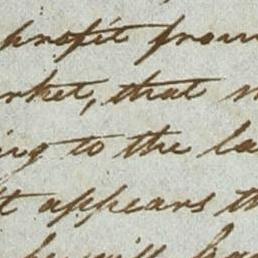 profit from
rket, that
ing to the la
it appears th
he will ha